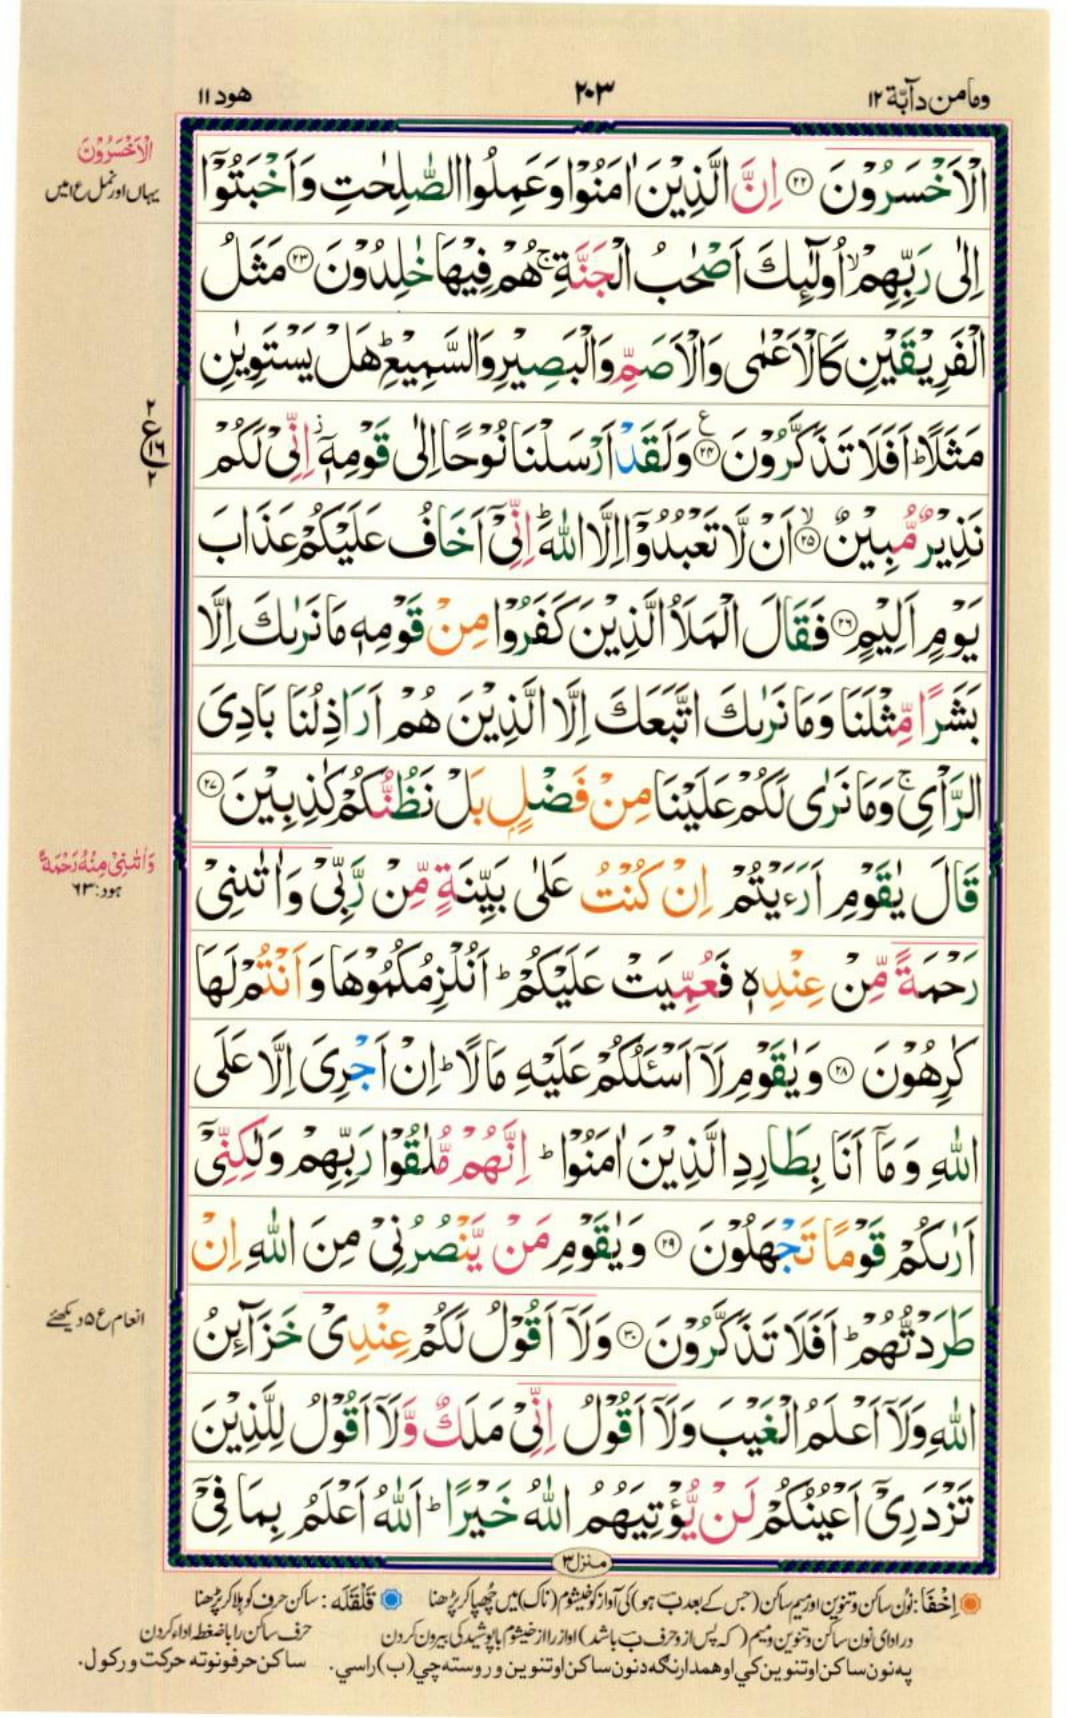 وما من دآبّة ١٢
٢٠٣
هود ١١
الْاَخْسَرُوْنَ ۝٢٢ اِنَّ الَّذِيْنَ اٰمَنُوْا وَعَمِلُوا الصّٰلِحٰتِ وَاَخْبَتُوْٓا
اِلٰى رَبِّهِمْ ۙ اُولٰٓئِكَ اَصْحٰبُ الْجَنَّةِ ۚ هُمْ فِيْهَا خٰلِدُوْنَ ۝٢٣ مَثَلُ
الْفَرِيْقَيْنِ كَالْاَعْمٰى وَالْاَصَمِّ وَالْبَصِيْرِ وَالسَّمِيْعِ ۭ هَلْ يَسْتَوِيٰنِ
مَثَلًا ۭ اَفَلَا تَذَكَّرُوْنَ ۝٢٤ۧ وَلَقَدْ اَرْسَلْنَا نُوْحًا اِلٰى قَوْمِهٖٓ ۡ اِنِّىْ لَكُمْ
نَذِيْرٌ مُّبِيْنٌ ۝٢٥ۙ اَنْ لَّا تَعْبُدُوْٓا اِلَّا اللّٰهَ ۭ اِنِّىْٓ اَخَافُ عَلَيْكُمْ عَذَابَ
يَوْمٍ اَلِيْمٍ ۝٢٦ فَقَالَ الْمَلَاُ الَّذِيْنَ كَفَرُوْا مِنْ قَوْمِهٖ مَا نَرٰىكَ اِلَّا
بَشَرًا مِّثْلَنَا وَمَا نَرٰىكَ اتَّبَعَكَ اِلَّا الَّذِيْنَ هُمْ اَرَاذِلُنَا بَادِىَ
الرَّاْىِ ۚ وَمَا نَرٰى لَكُمْ عَلَيْنَا مِنْ فَضْلٍۢ بَلْ نَظُنُّكُمْ كٰذِبِيْنَ ۝٢٧
قَالَ يٰقَوْمِ اَرَءَيْتُمْ اِنْ كُنْتُ عَلٰى بَيِّنَةٍ مِّنْ رَّبِّىْ وَاٰتٰىنِىْ
رَحْمَةً مِّنْ عِنْدِهٖ فَعُمِّيَتْ عَلَيْكُمْ ۭ اَنُلْزِمُكُمُوْهَا وَاَنْتُمْ لَهَا
كٰرِهُوْنَ ۝٢٨ وَيٰقَوْمِ لَآ اَسْئَلُكُمْ عَلَيْهِ مَالًا ۭ اِنْ اَجْرِىَ اِلَّا عَلَى
اللّٰهِ وَمَآ اَنَا بِطَارِدِ الَّذِيْنَ اٰمَنُوْا ۭ اِنَّهُمْ مُّلٰقُوْا رَبِّهِمْ وَلٰكِنِّىْٓ
اَرٰىكُمْ قَوْمًا تَجْهَلُوْنَ ۝٢٩ وَيٰقَوْمِ مَنْ يَّنْصُرُنِىْ مِنَ اللّٰهِ اِنْ
طَرَدْتُّهُمْ ۭ اَفَلَا تَذَكَّرُوْنَ ۝٣٠ وَلَآ اَقُوْلُ لَكُمْ عِنْدِىْ خَزَآئِنُ
اللّٰهِ وَلَآ اَعْلَمُ الْغَيْبَ وَلَآ اَقُوْلُ اِنِّىْ مَلَكٌ وَّلَآ اَقُوْلُ لِلَّذِيْنَ
تَزْدَرِىْٓ اَعْيُنُكُمْ لَنْ يُّؤْتِيَهُمُ اللّٰهُ خَيْرًا ۭ اَللّٰهُ اَعْلَمُ بِمَا فِىْٓ
منزل ٣
الْاَخْسَرُوْنَ
یہاں اور نمل ع ا میں
٢
ع
١٦
٢
وَاٰتٰىنِىْ مِنْهُ رَحْمَةً
ہود: ٦٣
انعام ع ۵ دیکھئے
اِخْفَا: نُون ساکن و تنوین اور میم ساکن (جس کے بعد بَ ہو) کی آواز کو خیشوم (ناک) میں چھپا کر پڑھنا
قَلْقَلَه: ساکن حرف کو ہلا کر پڑھنا
در ادای نون ساکن و تنوین و میم (که پس از و حرف بَ باشد) آواز را از خیشوم با پوشیدگی بیرون کردن
حرف ساکن را با ضغطه اداء کردن
په نون ساکن او تنوین کي او همدارنګه د نون ساکن او تنوین وروسته چي (ب) راسي.
ساکن حرفونو ته حرکت ورکول.